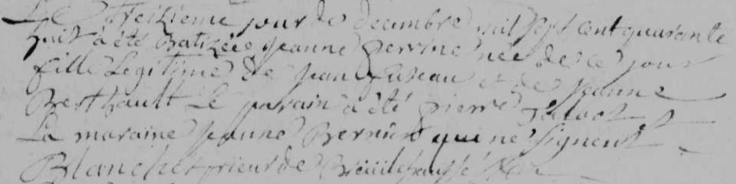 Le treizieme jour de decembre mil sept cent quarante
huit a été Batizée jeanne perrine née de ce jour
fille Legitime de jean fuseau et de jeanne
Berthault Le parain a été pierre
La maraine jeanne Bernier qui ne signent
Blanchet prieur de